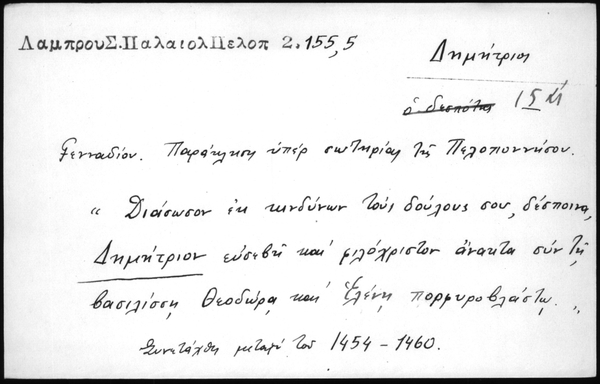 ΛαμπρουΣ.ΠαλαιολΠελοπ 2.155,5
Δημήτριος
ὁ δεσπότης
Γενναδίου. Παράκλησις ὑπέρ σωτηρίας τῆς Πελοποννήσου.
" Διάσωσον ἐκ κινδύνων τούς δούλους σου, δέσποινα,
Δημήτριον εὐσεβῆ καί φιλόχριστον ἄνακτα σύν τῇ
βασιλίσσῃ Θεοδώρᾳ καί Ἑλένῃ πορφυροβλάστῳ. "
Συνετάχθη μεταξύ τοῦ 1454 - 1460.